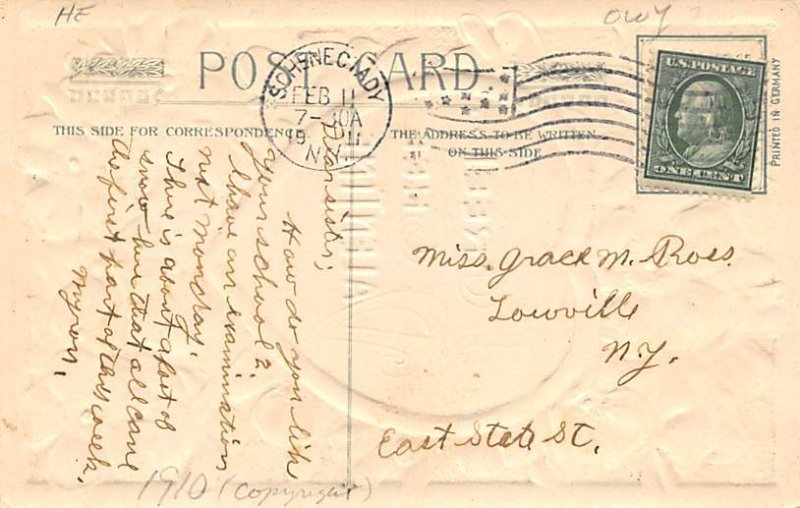 HE
OWY
POST CARD
THIS SIDE FOR CORRESPONDENCE
THE ADDRESS TO BE WRITTEN
ON THIS SIDE
SCHENECTADY
FEB 11
7-30A
1911
N.Y.
U.S. POSTAGE
ONE CENT
PRINTED IN GERMANY
Dear sister;
How do you like
your school?
I have an examination
next Monday.
There is about a foot of
snow here that all came
the first part of this week.
Myron.
Miss. Grace M. Roes.
Lowville
N.Y.
East State St.
1910 (copyright)